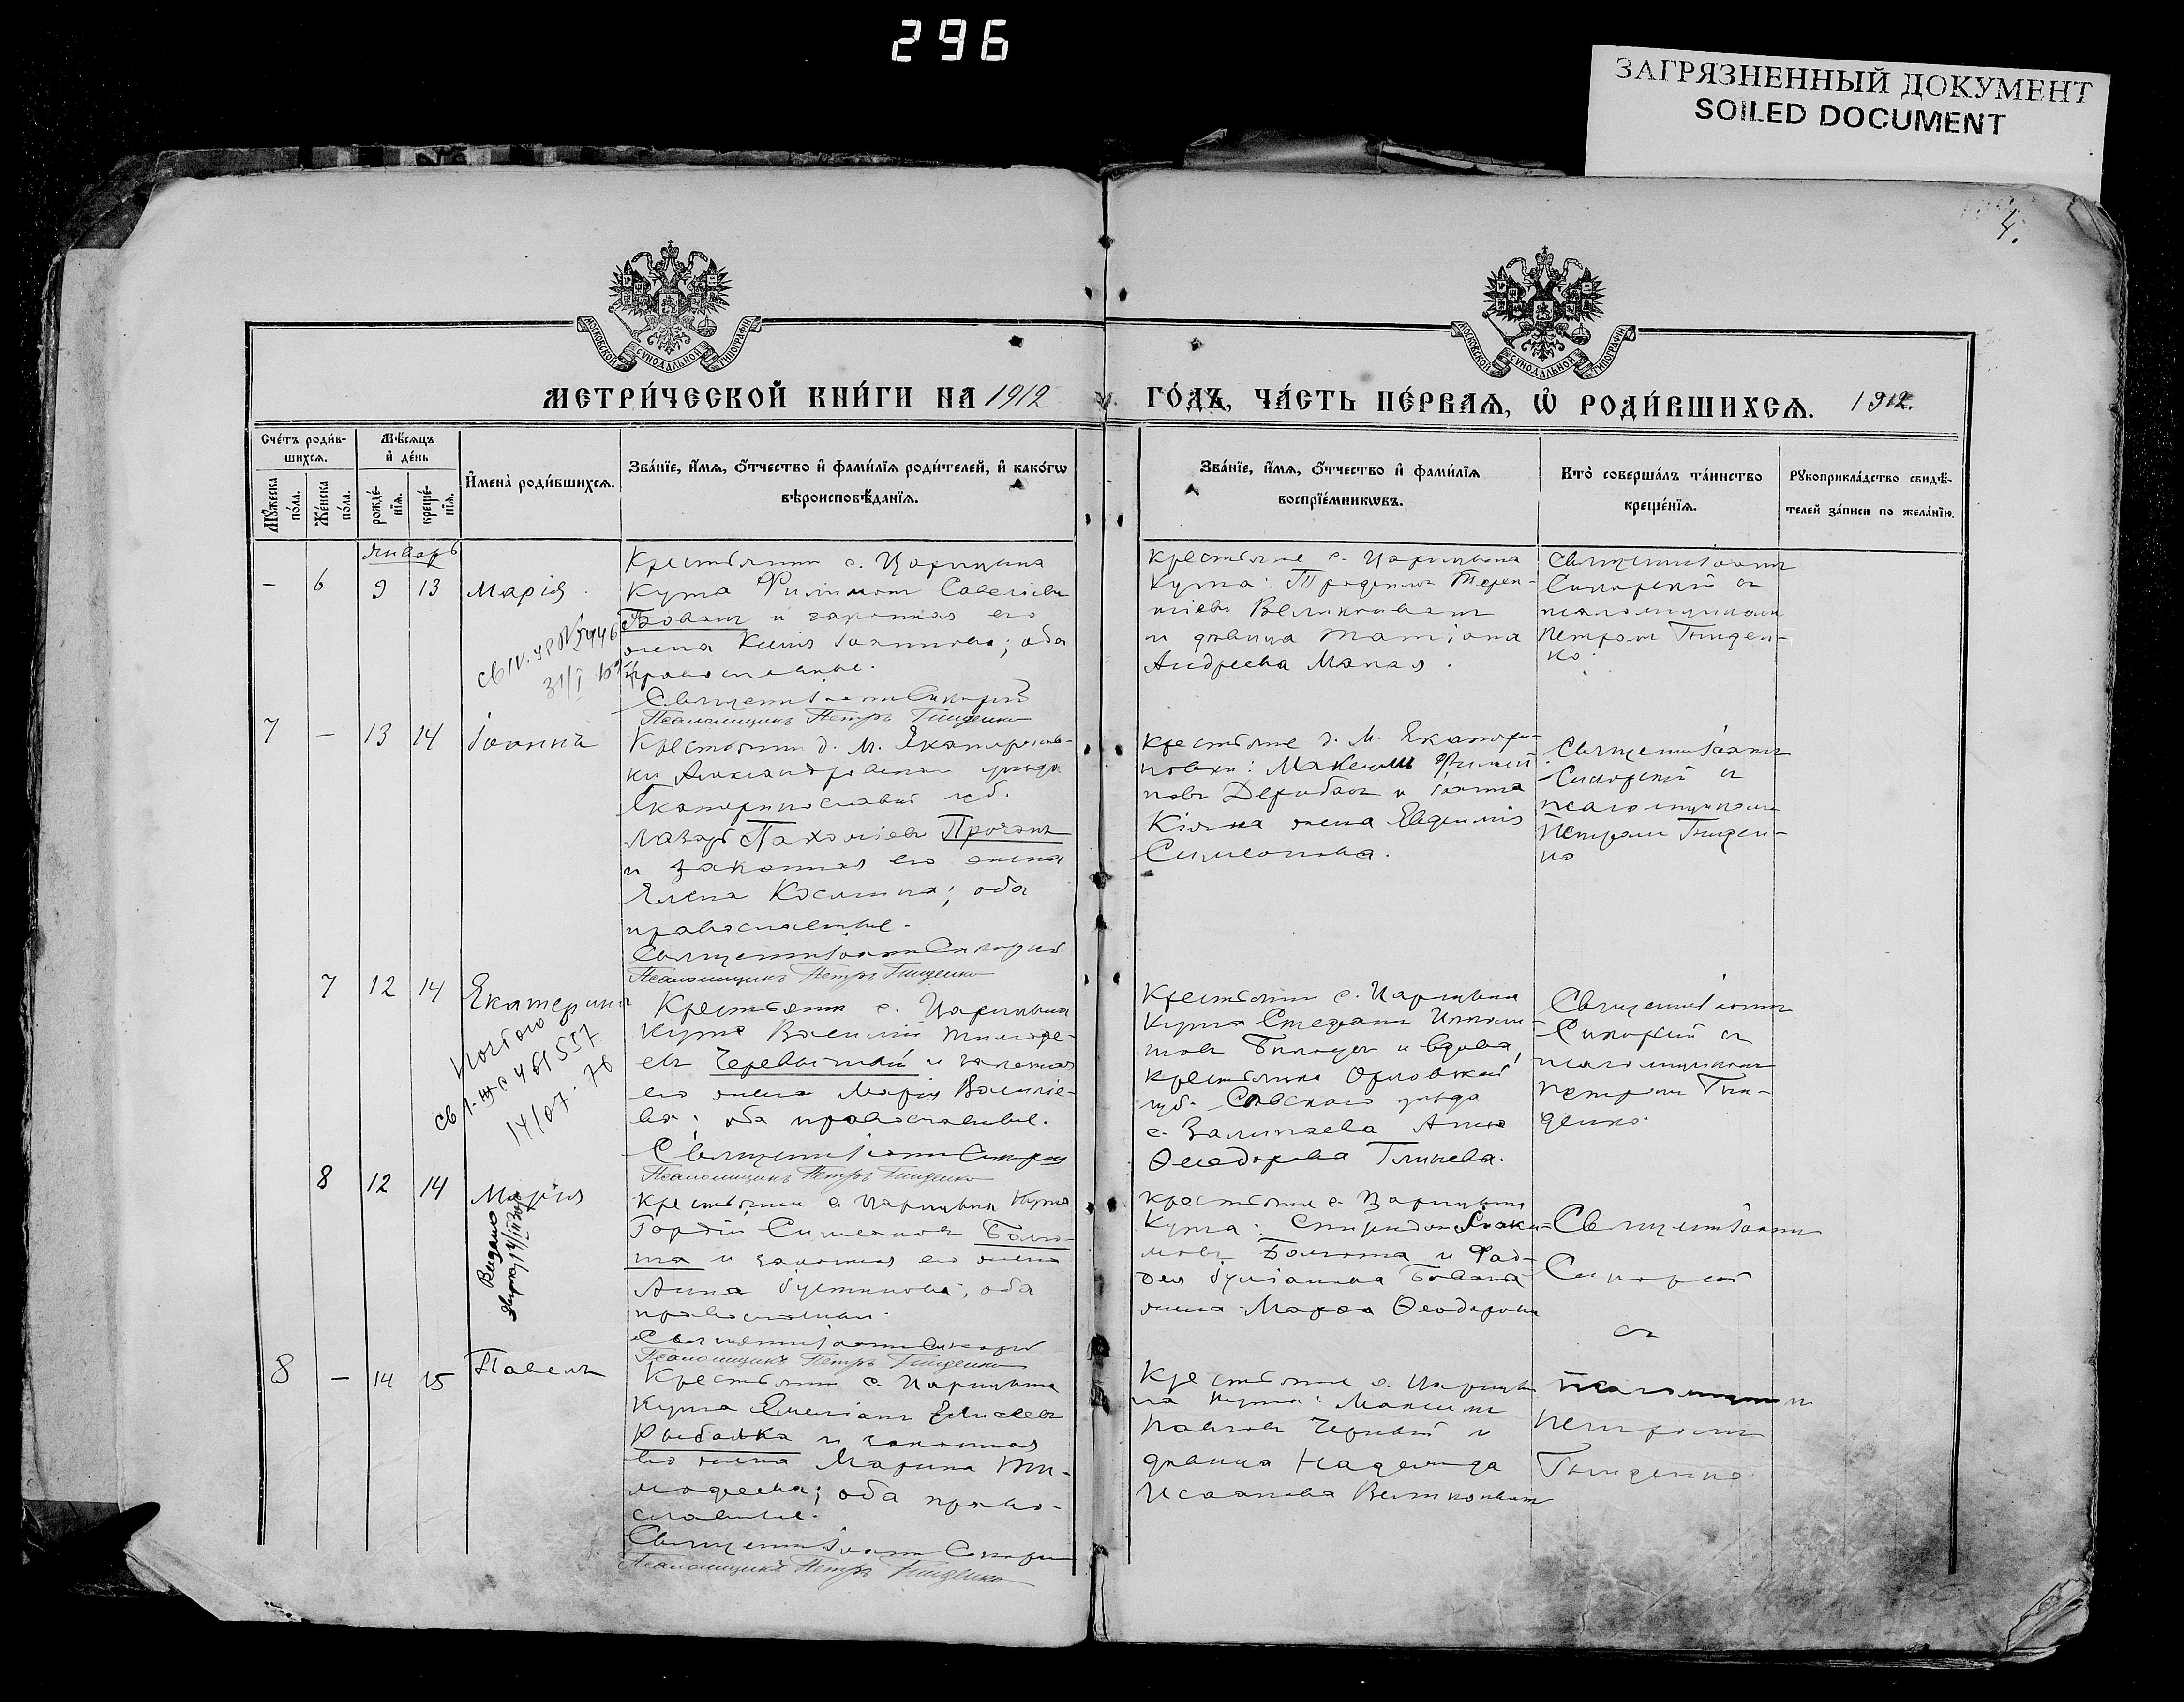 296
ЗАГРЯЗНЕННЫЙ ДОКУМЕНТ
SOILED DOCUMENT
4.
МОСКОВСКОЙ СУНОДАЛЬНОЙ ТИПОГРАФІИ
МОСКОВСКОЙ СУНОДАЛЬНОЙ ТИПОГРАФІИ
МЕТРИ́ЧЕСКОЙ КНИ́ГИ НА 1912
ГО́ДЪ, ЧА́СТЬ ПЕ́РВАѦ, Ѡ҆ РОДИ́ВШИХСѦ. 1912.
Сче́тъ роди́в-
шихсѧ.
Мꙋ́жеска
по́ла.
Же́нска
по́ла.
Мѣ́сѧцъ
и҆ де́нь
рожде́-
нїѧ.
креще́-
нїѧ.
И҆мена̀ роди́вшихсѧ.
Зва́нїе, и҆́мѧ, ѻ҆́тчество и҆ фами́лїѧ роди́телей, и҆ како́гѡ
вѣроисповѣ́данїѧ.
Зва́нїе, и҆́мѧ, ѻ҆́тчество и҆ фами́лїѧ
воспрїе́мникѡвъ.
Кто̀ соверша́лъ та́инство
креще́нїѧ.
Рꙋкоприкла́дство свидѣ́-
телей за́писи по жела́нїю.
Январь
– 6 9 13 Марія.
Крестьянинъ с. Царицына
Кута Филимонъ Савеліевъ
Бованъ и законная его
жена Ксенія Іоаннова; оба
православные.
Священникъ Іоаннъ Сикорскій
Псаломщикъ Петръ Гниденко
31/I
Крестьяне с. Царицына
Кута: Терен-
тіевъ
и дѣвица Татіана
Андреева Малая.
Священникъ Іоаннъ
Сикорскій съ
псаломщикомъ
Петромъ Гниден-
ко.
7 – 13 14 Іоаннъ
Крестьянинъ д. М. Екатеринов-
ки Александровскаго уѣзда
Екатеринославской губ.
Лазарь Пахоміевъ Прочанъ
и законная его жена
Елена Космина; оба
православные.
Священникъ Іоаннъ Сикорскій
Псаломщикъ Петръ Гниденко
Крестьяне д. М. Екатери-
новки: Максимъ Филип-
повъ Дерибасъ и Іоанна
жена Евдокія
Симеонова.
Священникъ Іоаннъ
Сикорскій съ
псаломщикомъ
Петромъ Гниден-
ко
7 12 14 Екатерина
461557
14/07. 76
Крестьянинъ с. Царицына
Кута Василій Тимофе-
евъ и законная
его жена Марія Василіе-
ва; оба православные.
Священникъ Іоаннъ Сикорскій
Псаломщикъ Петръ Гниденко
Крестьянинъ с. Царицына
Кута Стефанъ
и вдова,
крестьянка Орловской
губ. Сѣвскаго уѣзда
с. Анна
Ѳеодорова Глинева.
Священникъ Іоаннъ
Сикорскій съ
псаломщикомъ
Петромъ Гни-
денко.
8 12 14 Марія
Видано
Крестьянинъ с. Царицына Кута
Гордій Симеоновъ Болю-
та и законная его жена
Анна Іустинова; оба
православные.
Священникъ Іоаннъ Сикорскій
Псаломщикъ Петръ Гниденко
Крестьяне с. Царицына
Кута: Спиридонъ Іоаки-
мовъ и Фад-
дея Іуліанова Бована
жена Марѳа Ѳеодорова
Священникъ Іоаннъ
Сикорскій
съ
псаломщикомъ
Петромъ
Гниденко
8 – 14 15 Павелъ
Крестьянинъ с. Царицына
Кута Емеліанъ Елисеевъ
Рыбалка и законная
его жена Марина Ти-
мофеева; оба право-
славные.
Священникъ Іоаннъ Сикорскій
Псаломщикъ Петръ Гниденко
Крестьяне с. Царицы-
на Кута: Максимъ
Павловъ Черный и
дѣвица Надежда
Исаакова